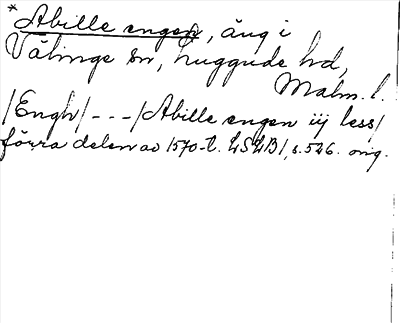 * Abille engen, äng i
Välinge sn, Luggude hd,
Malm. l.
/Engh/ - - - /Abille engen iij less/
förra delen av 1570-t. LSLB 1, s. 526. orig.